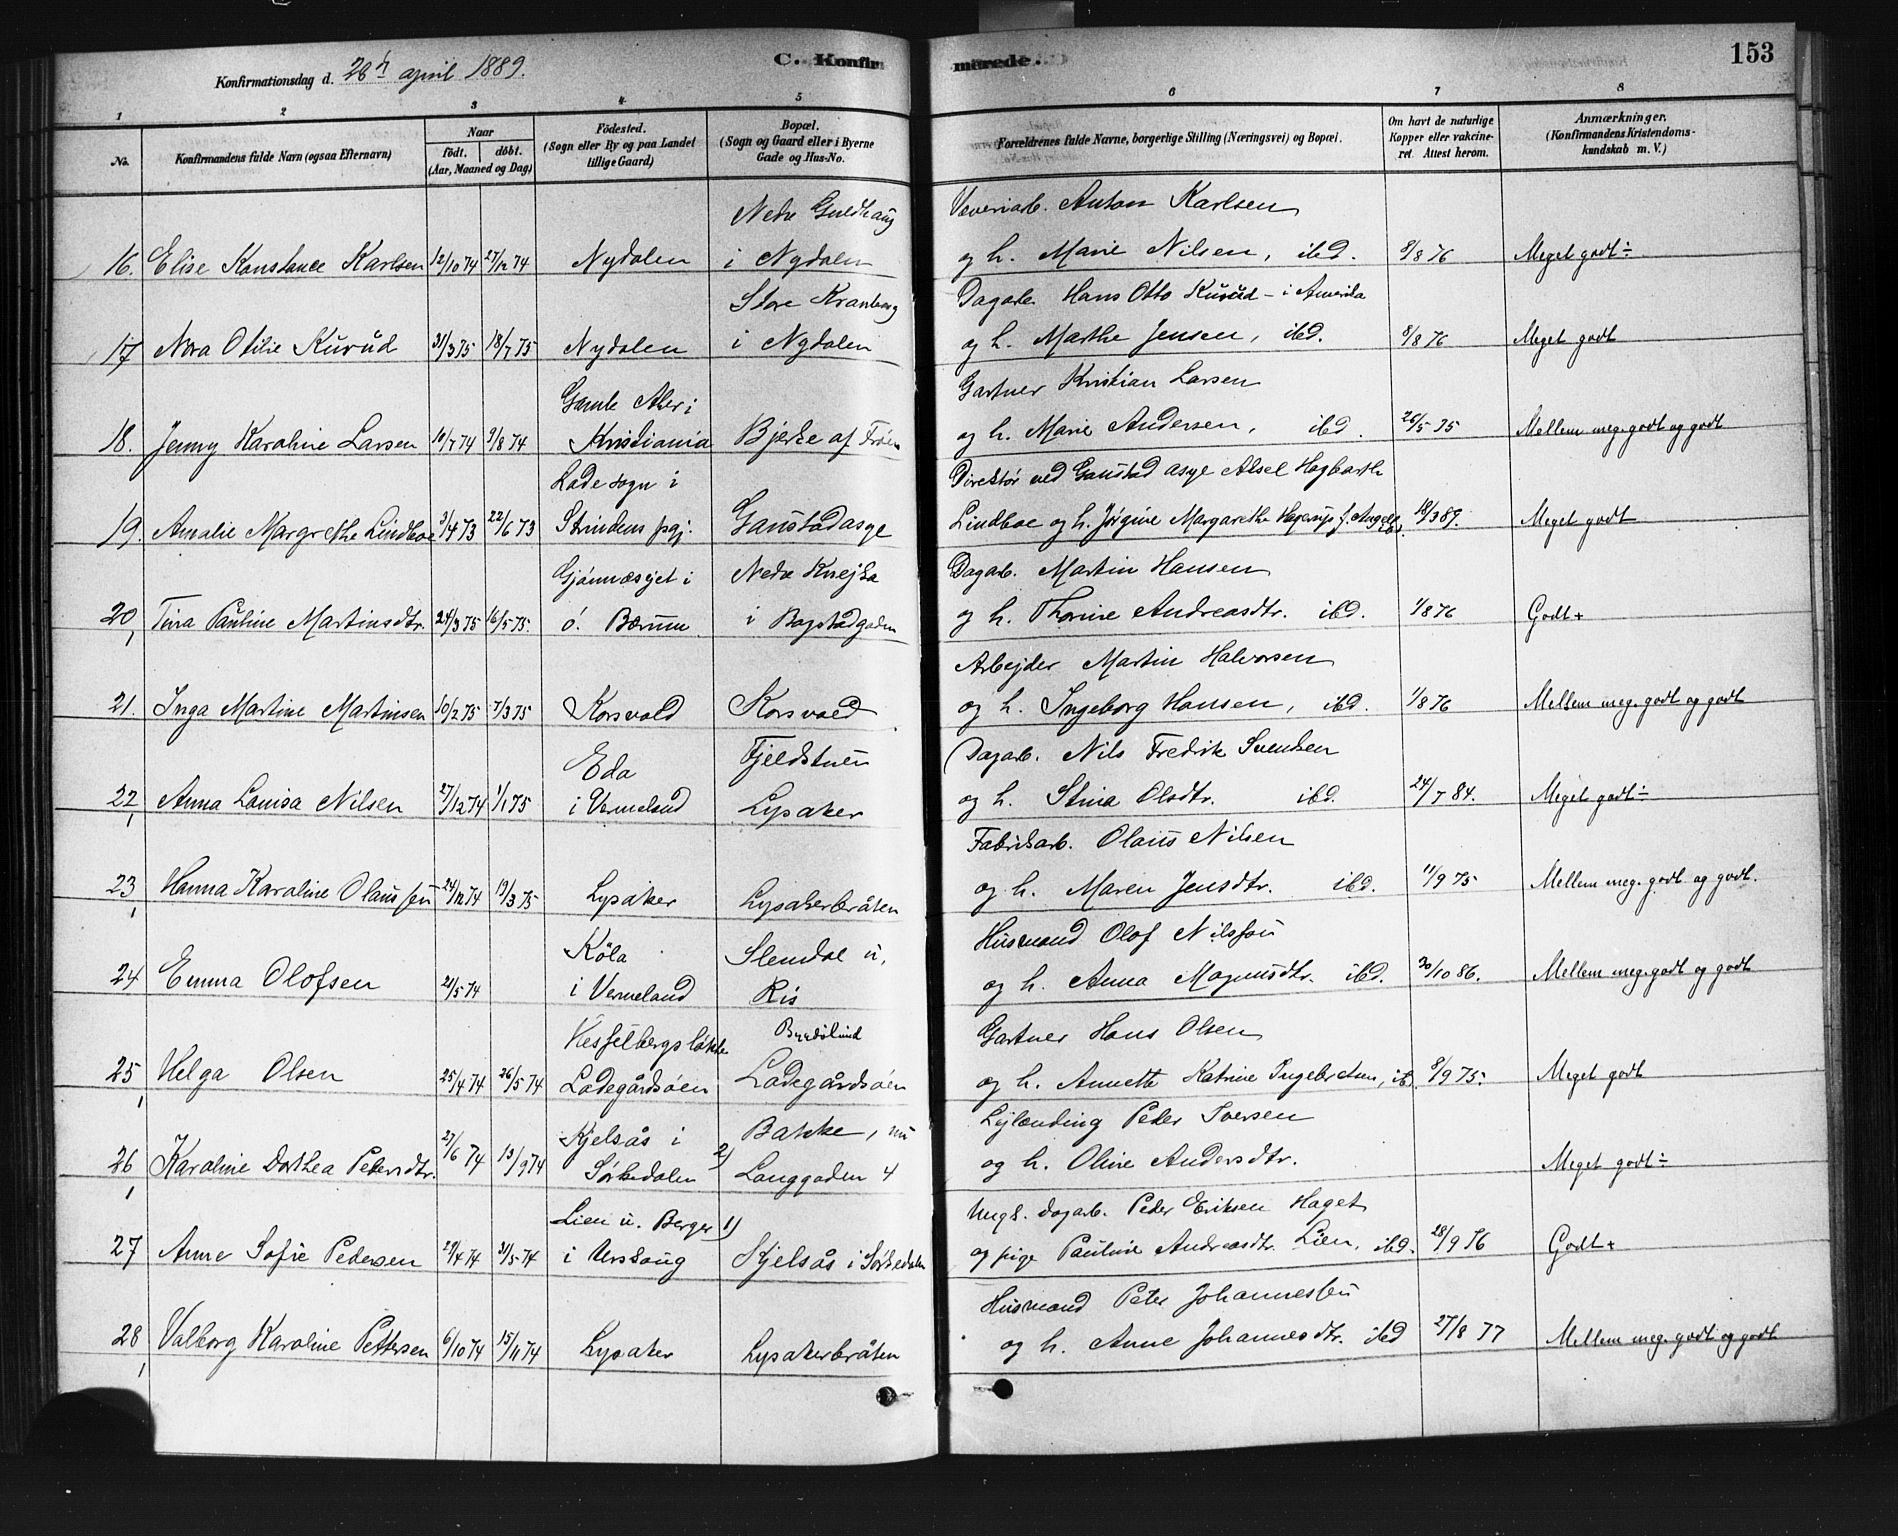 C. Konfirmerede.
153
Konfirmationsdag d. 28de april 1889.
1 2 3 4 5 6 7 8
No. Konfirmandens fulde Navn (ogsaa Efternavn) Naar født. døbt. (Aar, Maaned og Dag) Fødested. (Sogn eller By og paa Landet tillige Gaard) Bopæl. (Sogn og Gaard eller i Byerne Gade og Hus-No. Forældrenes fulde Navne, borgerlige Stilling (Næringsvei) og Bopæl. Om havt de naturlige Kopper eller vakcineret. Attest herom. Anmærkninger. (Konfirmandens Kristendomskundskab m. V.)
Nedre Guldhaug Væveriarb. Anton Karlsen
16. Elise Konstance Karlsen 12/10 74 27/12 74 Nydalen i Nydalen og h. Marie Nilsen, ibd. 8/8 76 Meget godt ÷
Store Kranhaug Dagarb. Hans Otto Kurud - i Amerika
17 Nora Otilie Kurud 31/3 75 18/7 75 Nydalen i Nydalen og h. Marthe Jensen, ibd. 8/8 76 Meget godt
Gamle Aker i Gartner Kristian Larsen
18. Jenny Karoline Larsen 10/7 74 9/8 74 Kristiania Bjerke af Frøen og h. Marie Andersen, ibd. 26/5 75 Mellem meg. godt og godt
Lade sogn i Direktør ved Gaustad asyl Aksel Hagbarth
19. Amalie Margrethe Lindboe 3/4 73 22/6 73 Strindens pgj. Gaustadasyl Lindboe og h. Jørgine Margarethe Hagerup f. Angell ibd. 18/3 89. Meget godt
Gjønnæsejet i Nedre Knejka Dagarb. Martin Hansen
20 Tina Pauline Martinsdtr. 24/3 75 16/5 75. ø. Bærum i Bogstadgaden og h. Thorine Andreasdtr. ibd. 1/8 76 Godt +
Arbejder Martin Halvorsen
21. Inga Martine Martinsen 10/2 75 7/3 75 Korsvold Korsvold og h. Ingeborg Hansen, ibd. 1/8 76 Mellem meg. godt og godt
Eda Fjeldstuen Dagarb. Nils Fredrik Svendsen
22 Anna Lovisa Nilsen 27/12 74 1/1 75 i Vermeland Lysaker og h. Stina Olsdtr. ibd. 24/7 84. Meget godt ÷
Fabrikarb. Olaus Nilsen
23 Hanna Karoline Olaussen 24/12 74 19/3 75 Lysaker Lysakerbråten og h. Maren Jensdtr. ibd. 11/9 75 Mellem meg. godt og godt.
Köla Slemdal u. Husmand Olof Nilsson
24 Emma Olofsen 21/5 74 i Vermeland Ris og h. Anna Magnusdtr. ibd. 30/10 86. Mellem meg. godt og godt
Hesselbergsløkke Gartner Hans Olsen
25 Helga Olsen 25/4 74 26/5 74 Ladegårdsøen Ladegårdsøen og h. Annette Katrine Ingebretsen, ibd. 8/9 75. Meget godt
Kjelsås i Bakke, nu Lejlænding Peder Iversen
26 Karoline Dorthea Petersdtr. 27/6 74 13/9 74 Sørkedalen 2) Langgaden 4 og h. Oline Andersdtr. Meget godt ÷
Lien u. Berger 1) Ungk. dagarb. Peder Eriksen Haget
27 Anne Sofie Pedersen 29/4 74 31/5 74 i Urskoug Kjelsås i Sørkedalen og pige Pauline Andreasdtr. Lien, ibd. 28/9 76 Godt +
Husmand Peter Johannessen
28 Valborg Karoline Pettersen 6/10 74 15/11 74 Lysaker Lysakerbråten og h. Anne Johannesdtr. ibd 27/8 77 Mellem meg. godt og godt